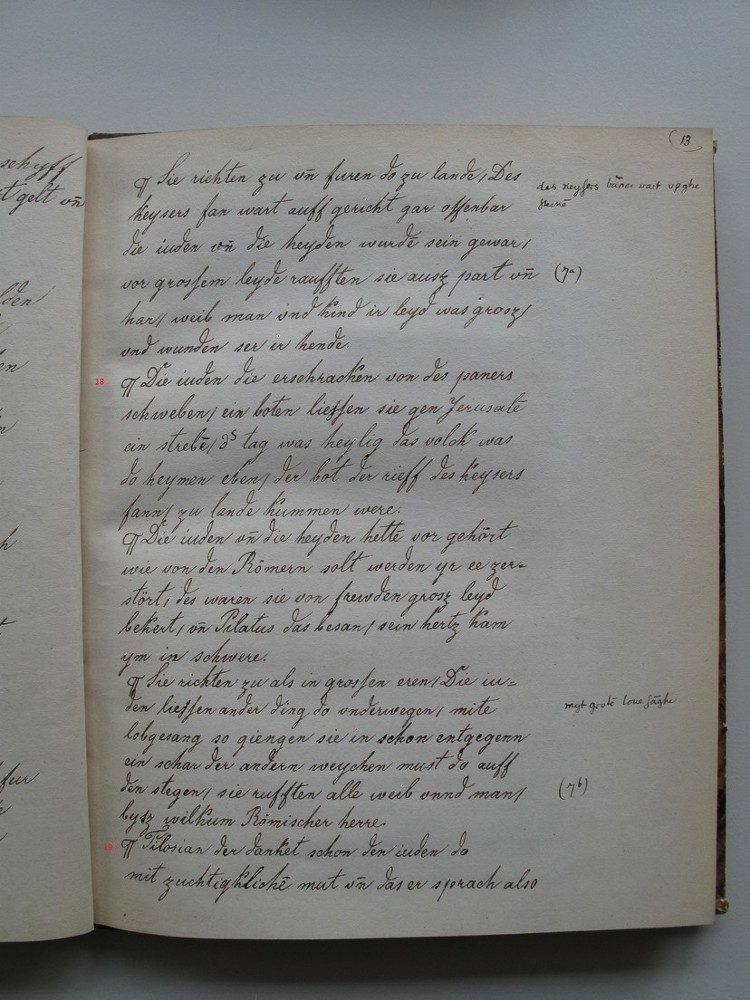 schyff
gelt vn̄
13
¶ Sie richten zu vn̄ furen do zu lande / Des
des keysers baner wart vpghe
keysers fan wart auff gericht gar offenbar
die iuden vn̄ die heyden wurdē sein gewar /
vor grossem leyde raufften sie ausz part vn̄
(7a)
har / weib man vnd kind ir leyd was grosz /
vnd wunden ser ir hende.
18
¶ Die iuden die erschracken von des paners
schweben / ein boten liessen sie gen Jerusalē
ein strebē / ds tag was heylig das volck was
do heymen eben / der bot der rieff des keysers
fann / zu lande kummen were.
¶ Die iuden vn̄ die heyden hettē vor gehört
wie von den Römern solt werden yr ee zer=
stört / des waren sie von frewden grosz leyd
bekert / vn̄ Pilatus das besan / sein hertz kam
ym in schwere.
¶ Sie richten zu als in grossen eren / Die iu=
den liessen ander ding do vnderwegen / mitē
myt grotē loue sāghe
lobgesang so giengen sie in schon entgegenn
ein schar der andern weychen must do auff
den stegen / sie rufften alle weib vnnd man /
(7b)
bysz wilkum Römischer herre.
19
¶ Tilosian der dancket schon den iuden do
mit zuchtigklichē mut vn̄ das er sprach also